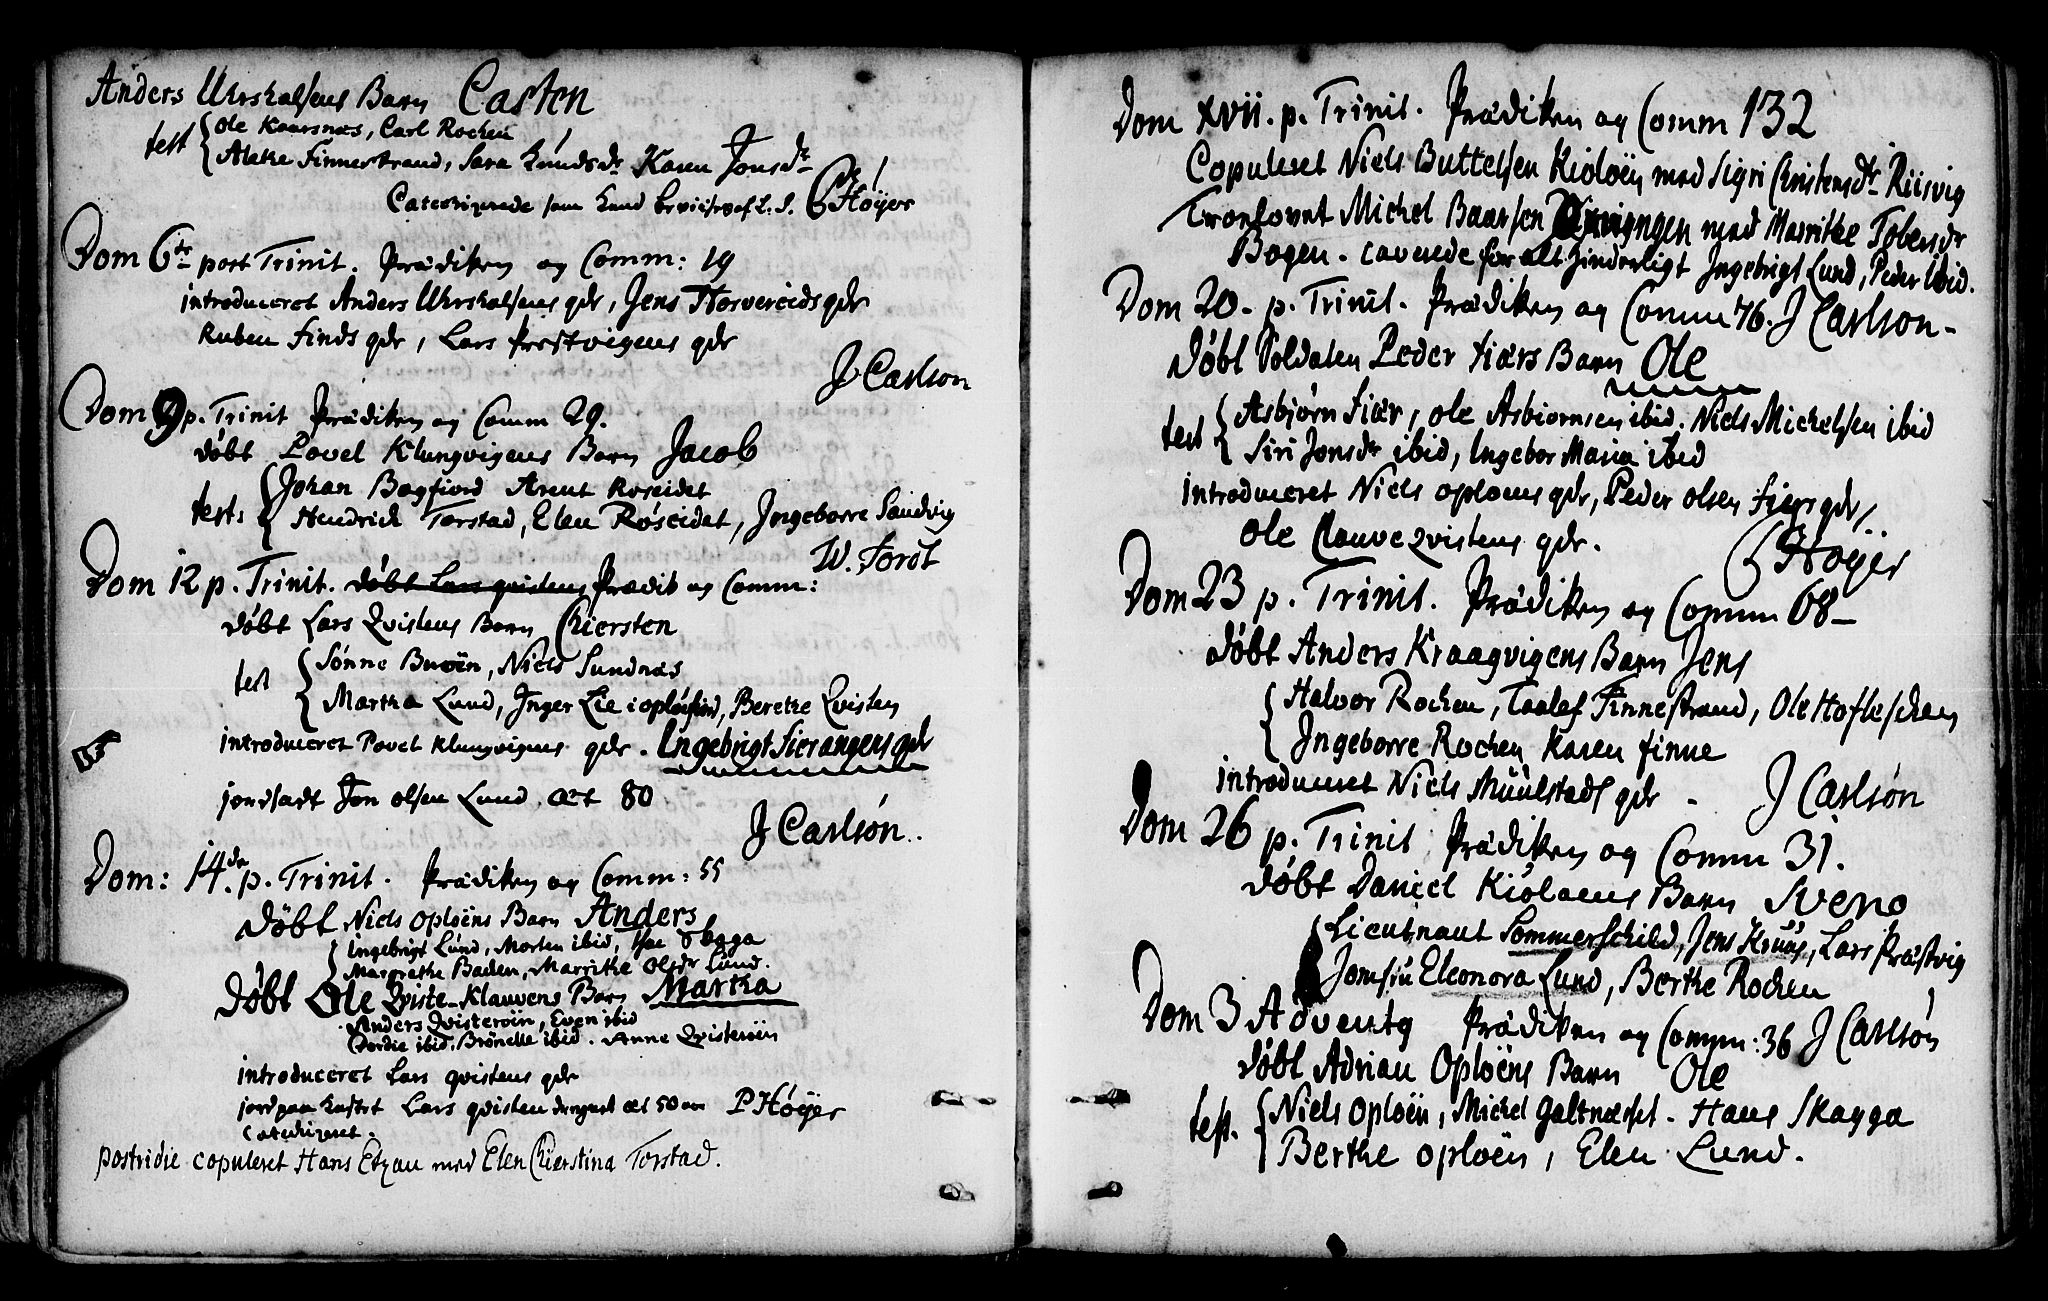 Anders Uhrskalsens Barn Casten
test Ole Kaarsnæs, Carl Rochen
Alethe Finnestrand, Sara Knudsdr Karen Jonsdr
Catechiserede som kund beviises af L. S. PHöyer
Dom 6te post Trinit. Prædiken og Comm: 19
introduceret Anders Uhrskalsens qdr, Jens Horvereids qdr
Ruben Finds qdr, Lars Præstvigens qdr
J Carlson
Dom 9 p. Trinit Prædiken og Comm 29.
døbt Povel Klungvigens Barn Jacob
test: Johan Bogfiord Arent Røseidet
Hendrich Torstad, Elen Røseidet, Ingeborre Sandvig
W. Tordt
Dom 12 p. Trinit. døbt Lars qvistens Prædik og Comm:
døbt Lars Qvistens Barn Chiersten
test Sønne Buröen, Niels Sundnæs
Martha Lund, Inger Lie i oplöefiord, Berethe Qvisten
introduceret Povel Klungvigens qdr. Ingebrigt Fierangens qdr
jordfadt Jon olsen Lund. æt 80
J Carlsón.
Dom: 14da p. Trinit. Prædiken og Comm: 55
døbt Niels Oploëns Barn Anders
Ingebrigt Lund, Morten ibid, Skaga
Margrethe Baden, Marrithe Olsdr Lund.
Døbt Ole Qviste-Klauvens Barn Martha
Anders Qvisteröen, Even ibid
Dordie ibid. Brönelle ibid. Anne Qvisteröen
introduceret Lars qvistens qdr
jord paa kastet Lars qvisten æt 50 PHöyer
Catechiseret.
postridie copuleret Hans Etzau med Elen Chierstina Torstad.
Dom XVII. p. Trinit. Prædiken og Comm 132
Copuleret Niels Buttelsen Kioloën med Sigri Christensdr Riisvig
Tronlovet Michel Baarsen med Marrithe Tobersdr
Bogen. caverede for alt hinderligt Ingebrigt Lund, Peder ibid.
Dom 20. p. Trinit. Prædiken og Comm 76. J Carlson.
døbt Soldaten Peder Fiærs Barn Ole
test Asbjørn Fiær, ole Asbiornsen ibid. Niels Michelsen ibid
Siri Jonsdr ibid, Ingebor Maria ibid
introduceret Niels oploens qdr, Peder olsen Fiærs qdr,
Ole Clauveqvistens qdr.
PHöyer
Dom 23 p. Trinit. Prædiken og Comm 68
døbt Anders Kraagvigens Barn Jens
Halvor Rochen, Taalef Finnestrand, Ole Hofleschen
Ingeborre Rochen Karen Finne
introduceret Niels Muulstads qdr - J Carlsón
Dom 26 p. Trinit Prædiken og Comm 31.
døbt Daniel Kioloens Barn Sveno
Lieutnant Sommerschild, Jens Kruus, Lars Præstvig
Jomfru Eleonora Lund, Berthe Rochen
Dom 3 Adventg Prædiken og Comm: 36 J Carlsón
døbt Adrian Oploëns Barn Ole
test. Niels Oploën, Michel Galtnæset. Hans Skagga
Berthe oploën, Elen Lund.